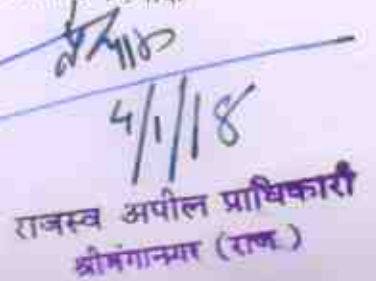 4/1/18
राजस्व अपील प्राधिकारी
श्रीगंगानगर (राज.)